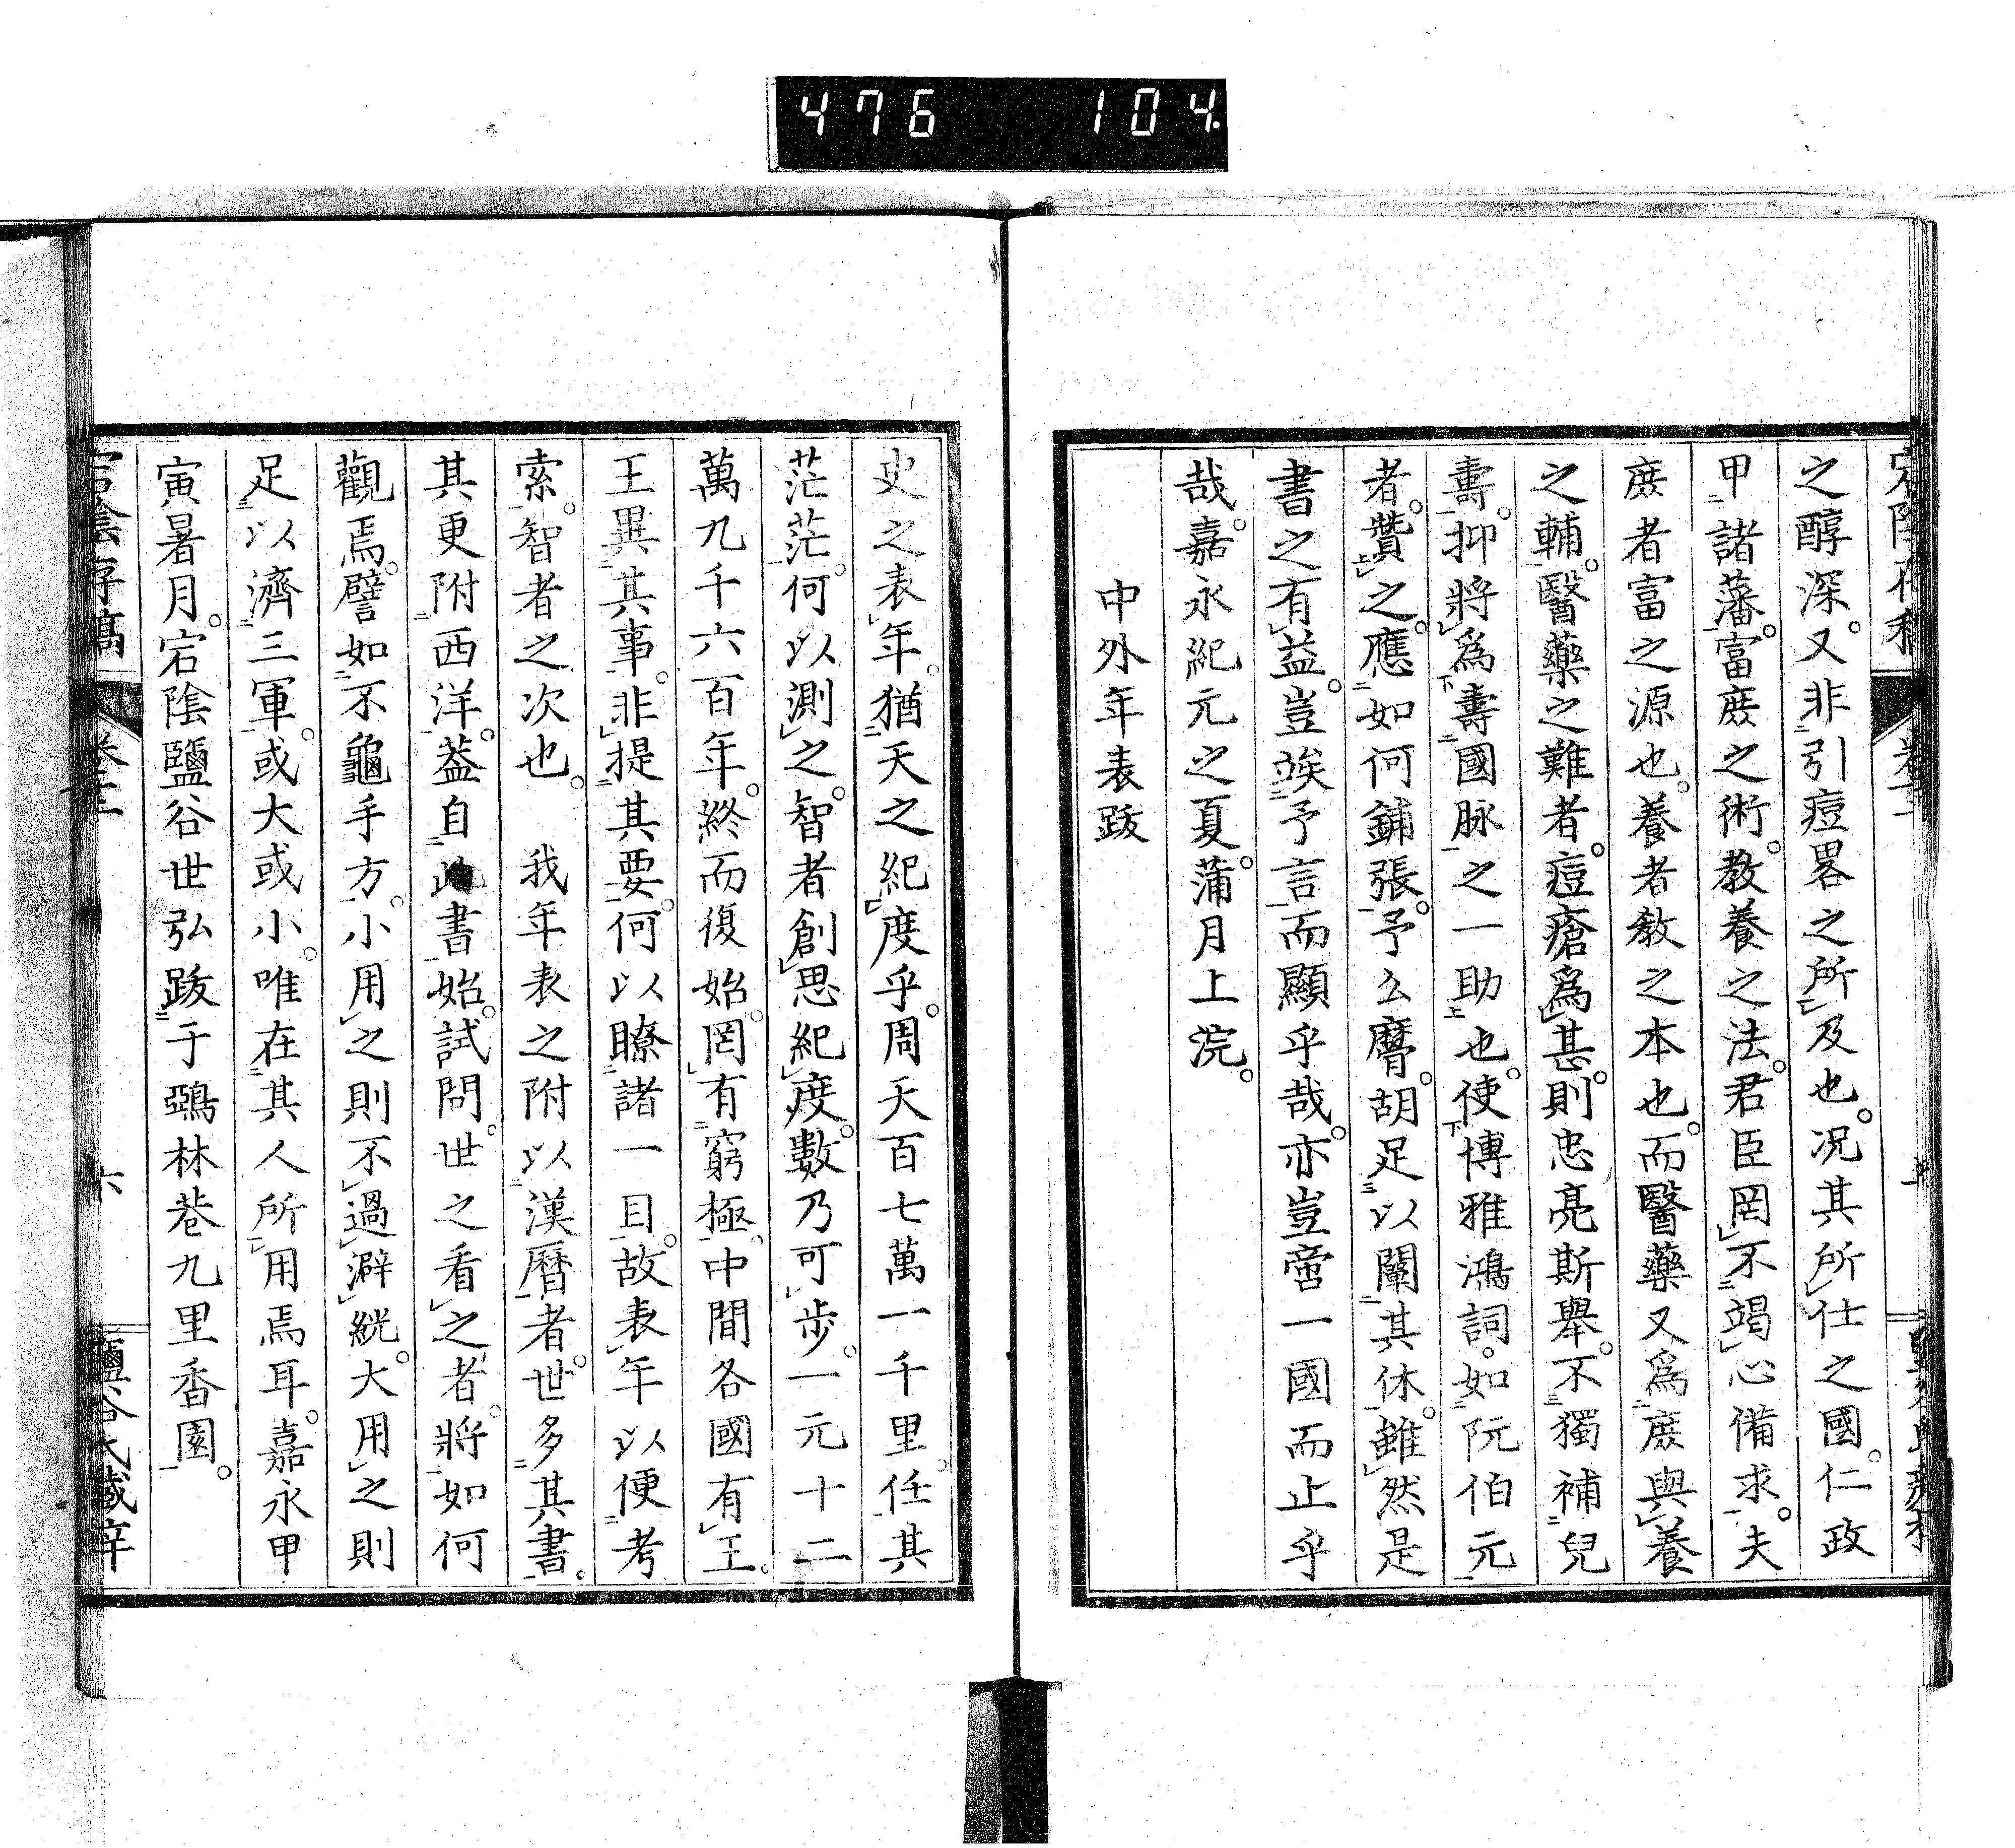 476 104
之醇深。又非引痘畧之所及也。况其所仕之國。仁政
甲諸藩。富庶之術。教養之法。君臣罔不竭心備求。夫
庶者富之源也。養者教之本也。而醫藥又爲庶與養
之輔。醫藥之難者。痘瘡爲甚。則忠亮斯舉。不獨補兒
壽。抑將爲壽國脉之一助也。使博雅鴻詞。如阮伯元
者。贊之。應如何鋪張。予么麿。胡足以闡其休。雖然是
書之有益。豈竢予言而顯乎哉。亦豈啻一國而止乎
哉。嘉永紀元之夏。蒲月上浣。
中外年表跋
史之表年。猶天之紀度乎。周天百七萬一千里。任其
茫茫。何以測之。智者創思紀度。數乃可步。一元十二
萬九千六百年。終而復始。罔有窮極。中間各國有王。
王異其事。非提其要。何以瞭諸一目。故表年以便考
索。智者之次也。 我年表之附以漢曆者。世多其書。
其更附西洋。葢自此書始。試問。世之看之者。將如何
觀焉。譬如不龜手方。小用之則不過澼絖。大用之則
足以濟三軍。或大或小。唯在其人所用焉耳。嘉永甲
寅暑月。宕陰鹽谷世弘跋于鵶林巷九里香園。
宕陰存稿 卷十二 六